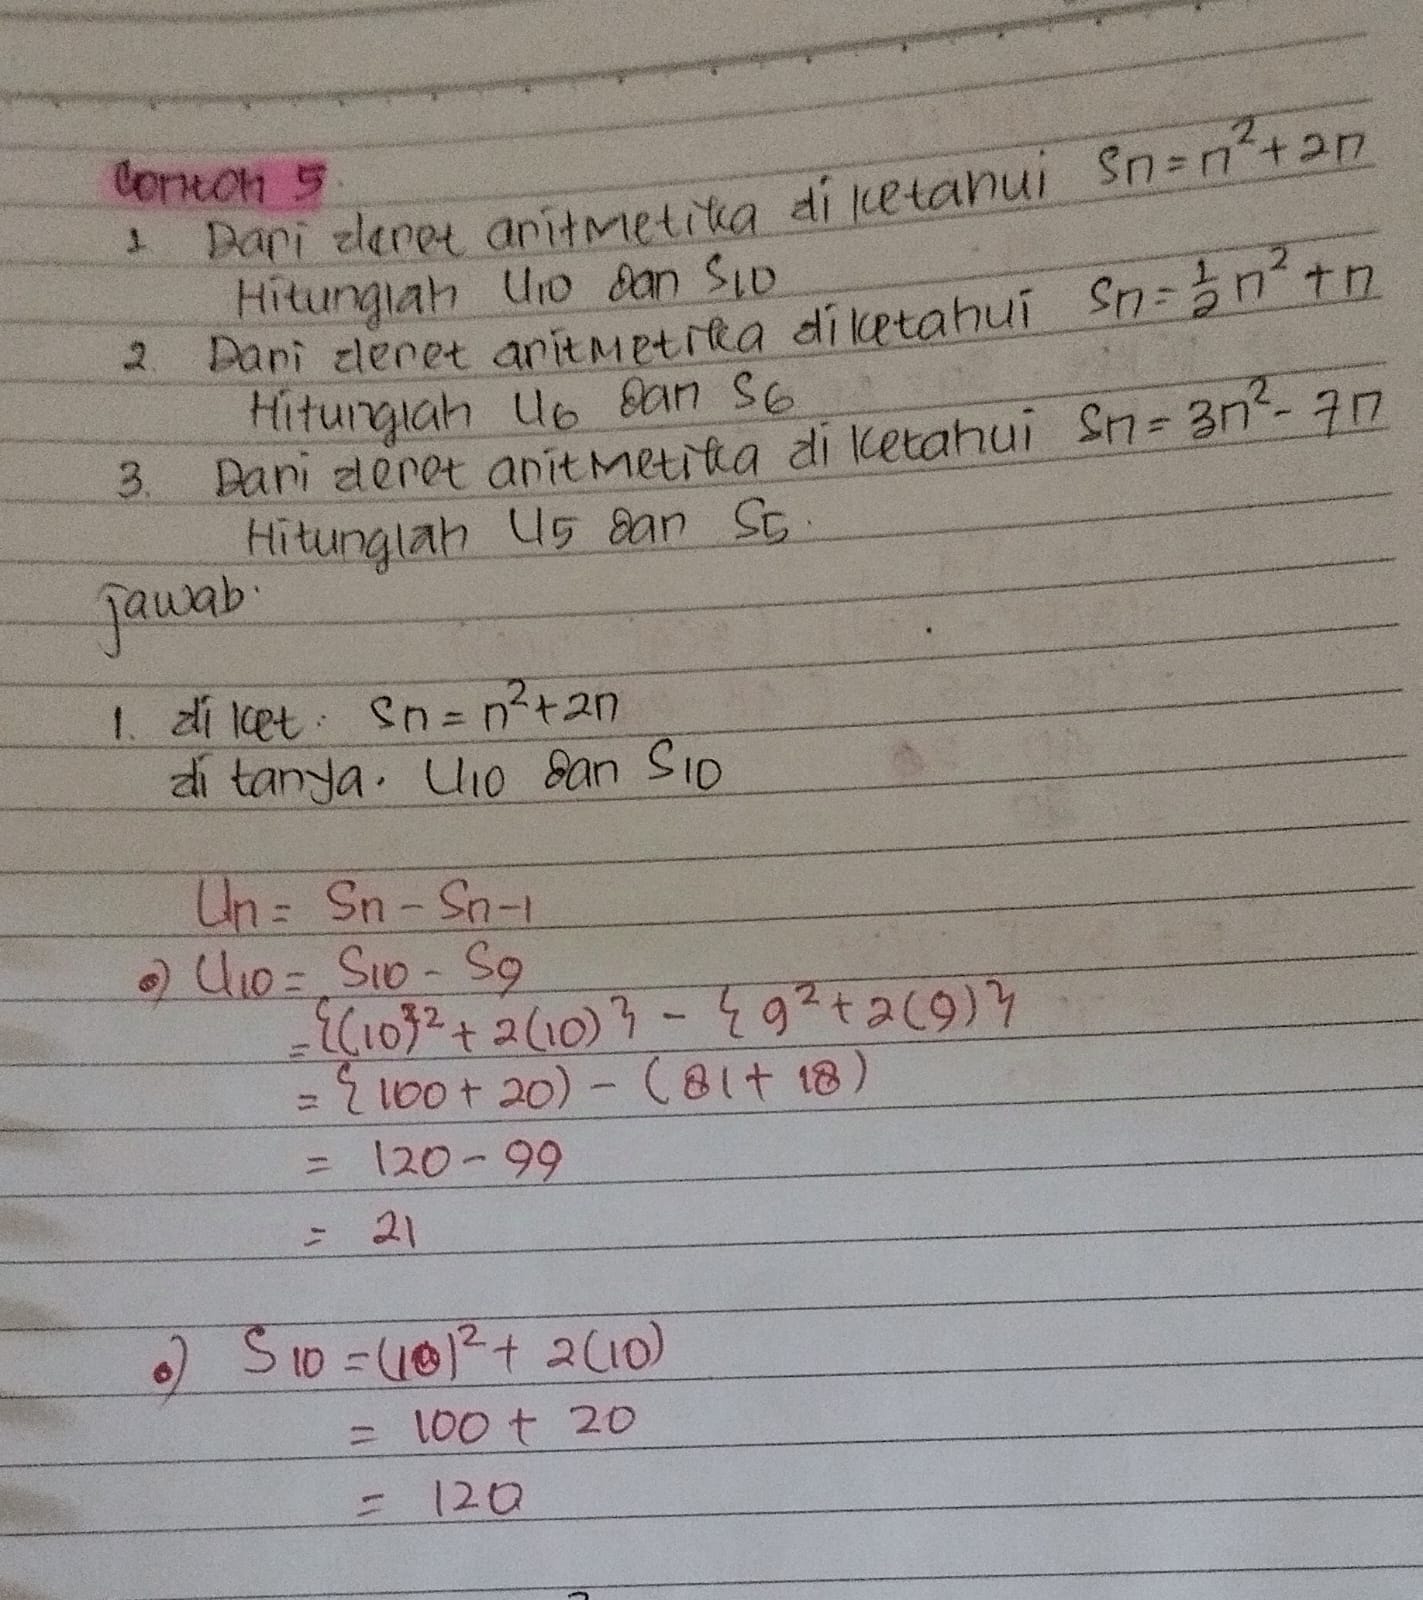 Contoh 5.
1 Dari deret aritmetika diketahui Sn = n² + 2n
Hitunglah U10 dan S10
2. Dari deret aritmetika diketahui Sn = 1/2 n² + n
Hitunglah U6 dan S6
3. Dari deret aritmetika diketahui Sn = 3n² - 7n
Hitunglah U5 dan S5.
jawab:
1. diket: Sn = n² + 2n
ditanya. U10 dan S10
Un = Sn - Sn-1
•) U10 = S10 - S9
= {(10}² + 2(10)} - {9² + 2(9)}
= {100 + 20) - (81 + 18)
= 120 - 99
= 21
•) S10 = (10)² + 2(10)
= 100 + 20
= 120